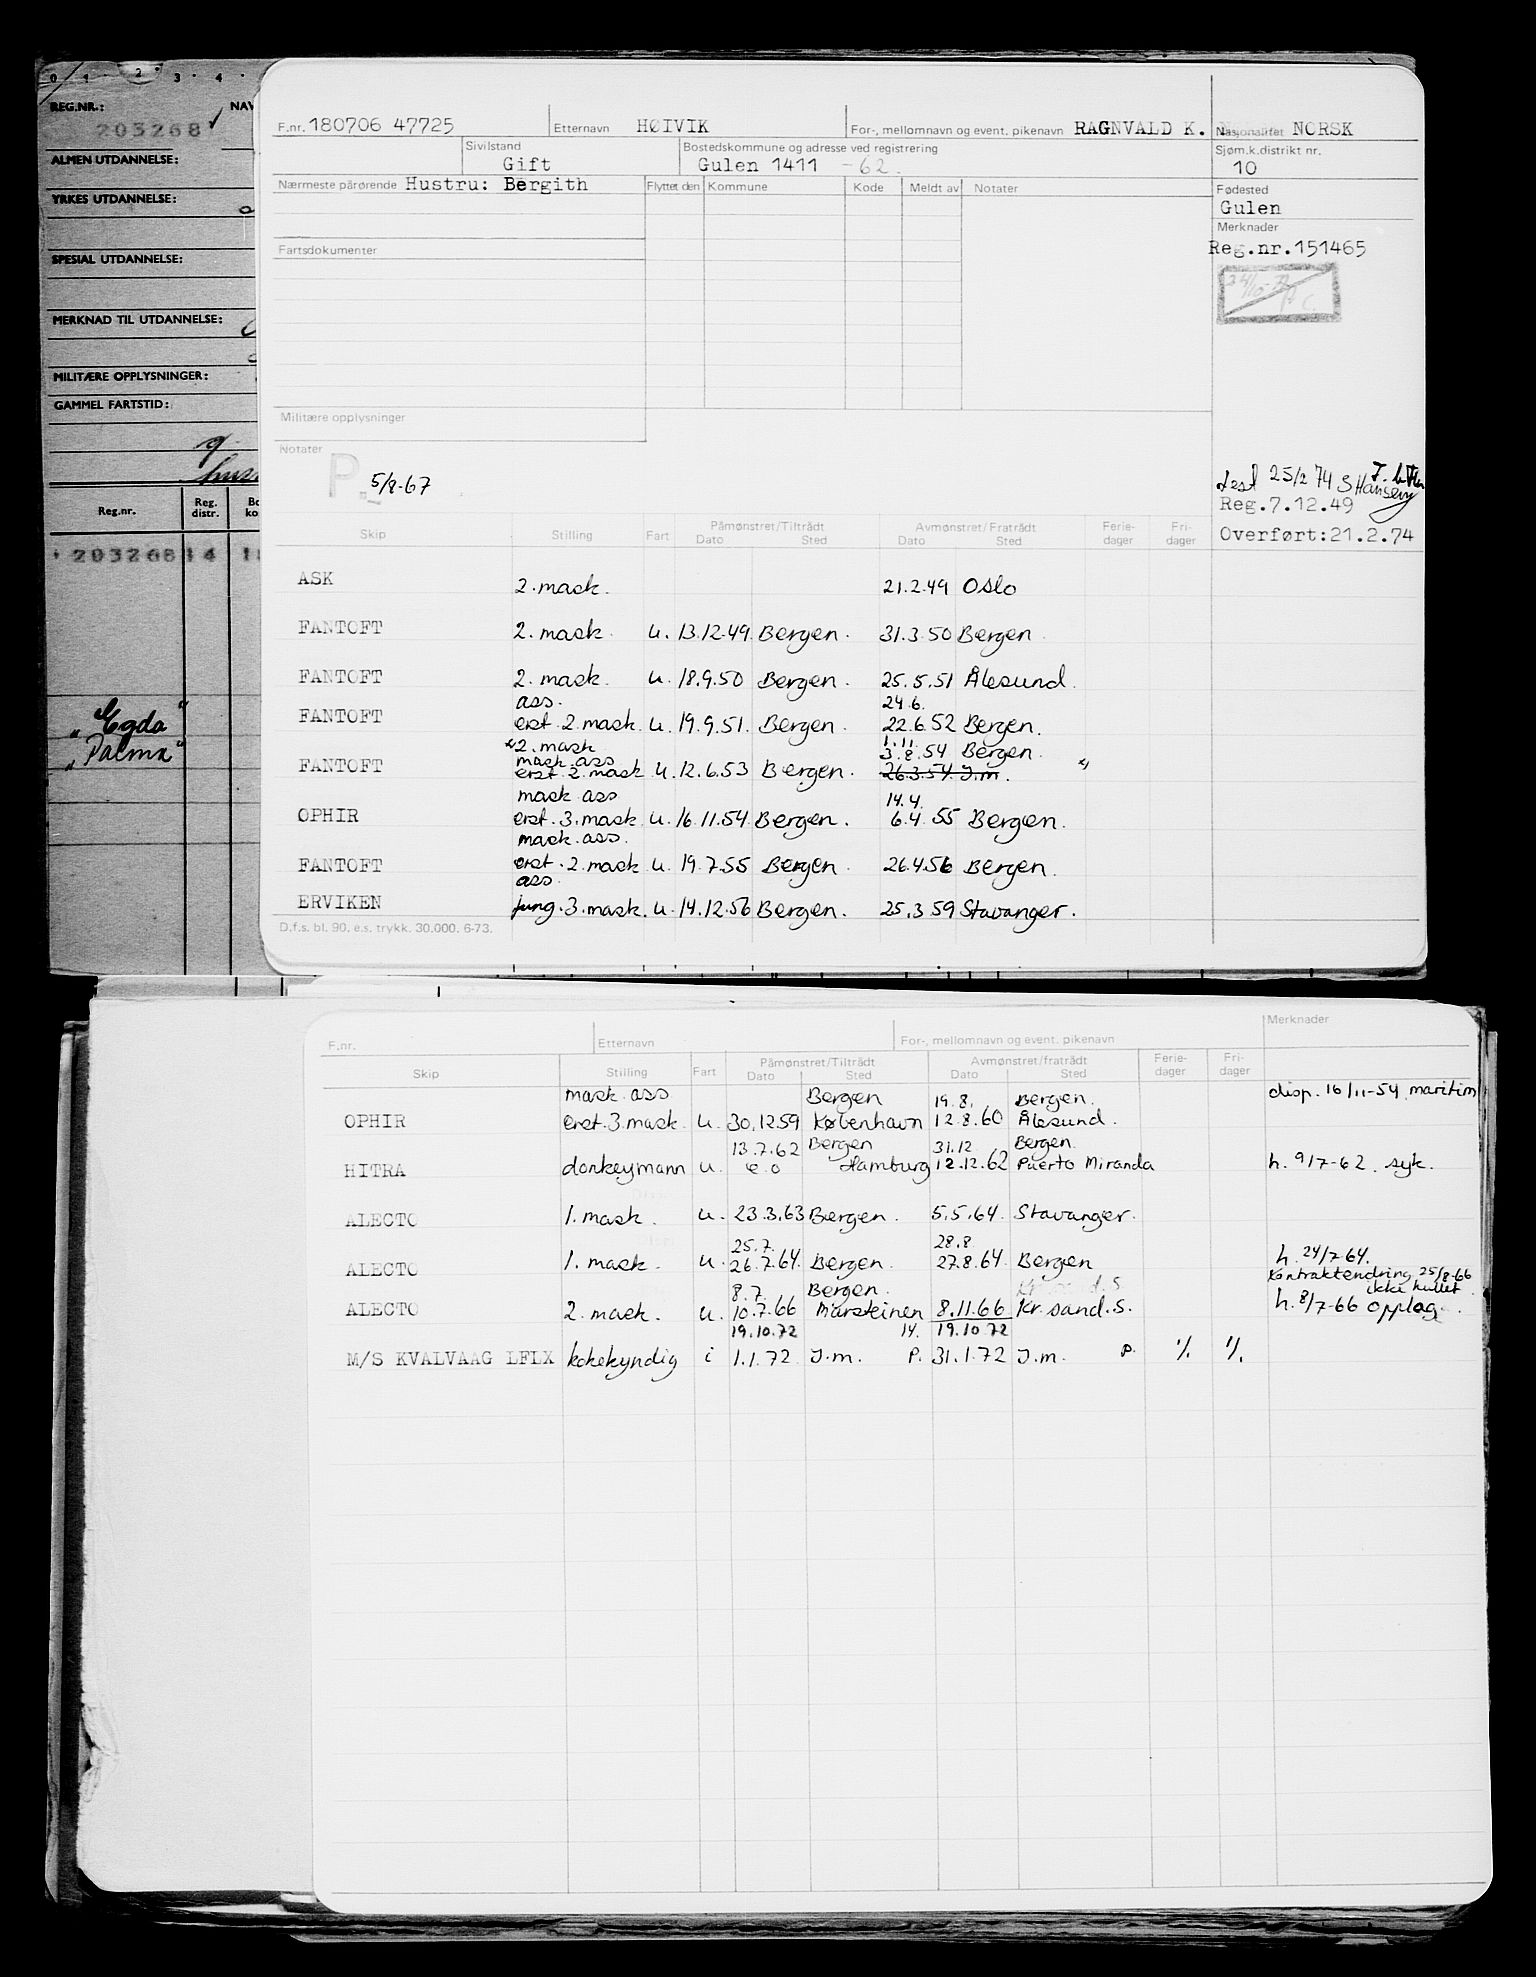 0 1 2 3 4
REG.NR.: NAV
203268
ALMEN UTDANNELSE:
YRKES UTDANNELSE:
SPESIAL UTDANNELSE:
MERKNAD TIL UTDANNELSE:
MILITÆRE OPPLYSNINGER:
GAMMEL FARTSTID:
Reg.nr. Reg. distr. Bo ko
20326814
"Egda"
"Palma"
F.nr. 180706 47725 Etternavn HØIVIK For-, mellomnavn og event. pikenavn RAGNVALD K. Nasjonalitet NORSK
Sivilstand Gift Bostedskommune og adresse ved registrering Gulen 1411 -62. Sjøm.k.distrikt nr. 10
Nærmeste pårørende Hustru: Bergith Flyttet den Kommune Kode Meldt av Notater Fødested
Gulen
Merknader
Fartsdokumenter Reg.nr.151465
Militære opplysninger
Notater
P. 5/8-67
25/2 74 S Hansen
Reg.7.12.49
Overført:21.2.74
Skip Stilling Fart Påmønstret/Tiltrådt Dato Sted Avmønstret/Fratrådt Dato Sted Ferie-dager Fri-dager
ASK 2. mask. 21.2.49 Oslo
FANTOFT 2. mask. u. 13.12.49 Bergen. 31.3.50 Bergen.
FANTOFT 2. mask. u. 18.9.50 Bergen. 25.5.51 Ålesund.
ass. 24.6.
FANTOFT erst. 2. mask u. 19.9.51. Bergen. 22.6.52 Bergen.
x) 2. mask 1.11.
mask. ass 3.8.54 Bergen.
FANTOFT erst. 2. mask u. 12.6.53 Bergen. 26.3.54 I.m. x)
mask ass 14.4.
OPHIR erst. 3. mask u. 16.11.54 Bergen. 6.4.55 Bergen.
mask. ass.
FANTOFT erst. 2. mask u. 19.7.55 Bergen. 26.4.56 Bergen.
ass.
ERVIKEN jung. 3. mask. u. 14.12.56 Bergen. 25.3.59 Stavanger.
D.f.s. bl. 90. e.s. trykk. 30.000. 6-73.
F.nr. Etternavn For-, mellomnavn og event. pikenavn Merknader
Skip Stilling Fart Påmønstret/Tiltrådt Dato Sted Avmønstret/fratrådt Dato Sted Ferie-dager Fri-dager
mask ass Bergen 19.8. Bergen. disp. 16/11-54 maritim
OPHIR erst. 3. mask. u. 30.12.59 København 12.8.60 Ålesund.
13.7.62 Bergen 31.12 Bergen.
HITRA donkeymann u. e.o Hamburg 12.12.62 Puerto Miranda h. 9/7-62. syk.
ALECTO 1. mask. u. 23.3.63 Bergen. 5.5.64. Stavanger.
25.7. 28.8 h. 24/7-64.
ALECTO 1. mask. u. 26.7.64. Bergen. 27.8.64. Bergen Kontraktendring 25/8-66
8.7. Bergen. ikke hullet.
ALECTO 2. mask. u. 10.7.66 Marsteinen 8.11.66 Kr. sand. S. h. 8/7-66 opplag.
19.10.72 14. 19.10.72
M/S KVALVAAG LFLX kokekyndig i 1.1.72 I.m. P. 31.1.72 I.m. P. 1/. 1/.